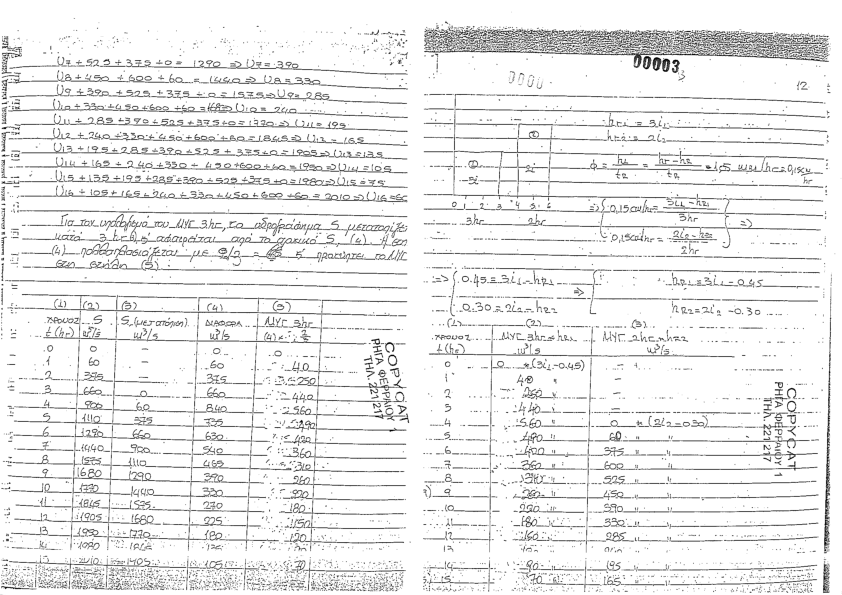 U7 + 525 + 375 + 0 = 1290 ⇒ U7 = 390
U8 + 450 + 600 + 60 = 1440 ⇒ U8 = 330
U9 + 390 + 525 + 375 + 0 = 1575 ⇒ U9 = 285
U10 + 330 + 450 + 600 + 60 = U10 = 240
U11 + 285 + 390 + 525 + 375 + 0 = 1770 ⇒ U11 = 195
U12 + 240 + 330 + 450 + 600 + 60 = 1845 ⇒ U12 = 165
U13 + 195 + 285 + 390 + 525 + 375 + 0 = 1905 ⇒ U13 = 135
U14 + 165 + 240 + 330 + 450 + 600 + 60 = 1950 ⇒ U14 = 105
U15 + 135 + 195 + 285 + 390 + 525 + 375 + 0 = 1980 ⇒ U15 = 75
U16 + 105 + 165 + 240 + 330 + 450 + 600 + 60 = 2010 ⇒ U16 =
Για τον υπολογισμό του ΜΥΓ 3hr, το αδρογράφημα S
κατά 3hr αφαιρείται από το αρχικό S, (4). Η
(4) πολλαπλασιάζεται με 2/3 = προκύπτει το ΜΥΓ
στη στήλη (5):
(1) (2) (3) (4) (5)
ΧΡΟΝΟΣ S S (μετατόπιση) ΔΙΑΦΟΡΑ ΜΥΓ 3hr
t (hr) m³/s m³/s m³/s (4) × 2/3
0 0 – 0 0
1 60 – 60 40
2 375 – 375 250
3 660 0 660 440
4 900 60 840 560
5 1110 375 735 490
6 1290 660 630 420
7 1440 900 540 360
8 1575 1110 465 310
9 1680 1290 390 260
10 1770 1440 330 220
11 1845 1575 270 180
12 1905 1680 225 150
13 1950 1770 180 120
14 1980 1845 135
15 2010 1905 105 70
COPYCAT
ΡΗΓΑ ΦΕΡΡΑΙΟΥ 1
ΤΗΛ. 221 217
00003
0000
12
hr1 = 3i1
hr2 = 2i2
3i 2i
0 1 2 3 4 5 6
3hr 2hr
⇒ { 0,15cm/hr = 3i1 - hR1 / 3hr
0,15cm/hr = 2i2 - hR2 / 2hr } ⇒
⇒ { 0.45 = 3i1 - hR1 ⇒ { hR1 = 3i1 - 0.45
0.30 = 2i2 - hR2 hR2 = 2i2 - 0.30
(1) (2) (3)
ΧΡΟΝΟΣ ΜΥΓ 3hr × hR1 ΜΥΓ 2hr × hR2
t (hr) m³/s m³/s
0 0 × (3i1 - 0.45) –
1 40 " –
2 250 " –
3 440 " –
4 560 " 0 × (2i2 - 0.30)
5 490 " 60 "
6 420 " 375 " "
7 360 " 600 " "
8 310 " 525 " "
9 260 " 450 " "
10 220 " 390 " "
11 180 " 330 " "
12 150 " 285 " "
13
14 90 " 195 " "
15 70 " 165 " "
COPYCAT
ΡΗΓΑ ΦΕΡΡΑΙΟΥ 1
ΤΗΛ. 221 217